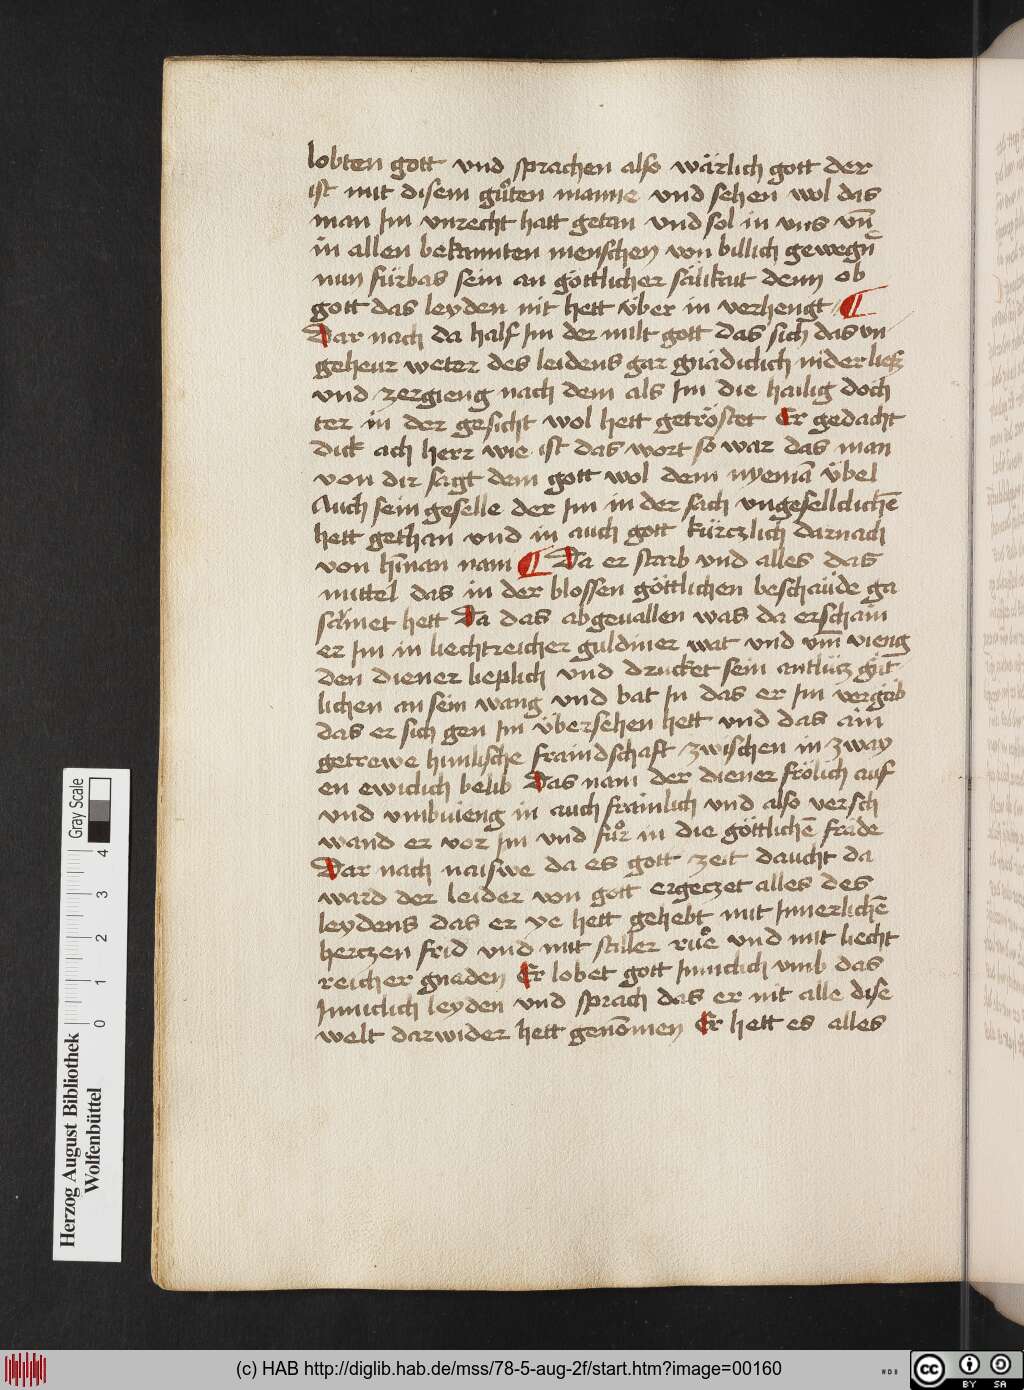 lobten gott vnd sprachen also wärlich gott der
ist mit disem gůten manne vnd sehen wol das
man Im vnrecht hatt getan vnd sol in vns vn̄
in allen bekannten menschen von billich gewegn̄
nun fürbas sein an göttlicher sälikait denn ob
gott das leyden nit hett über in verhengt ¶
Dar nach da half Im der milt gott das sich das vn
geheur weter des leidens gar gnädiclich niderliesz
vnd zergieng nach dem als Im die hailig doch
ter in der gesicht wol hett getröstet Er gedacht
dick ach herr wie ist das wort so war das man
von dir sagt dem gott wol dem nyemā übel
Auch sein geselle der Im in der sach vngesellclichē
hett gethan vnd in auch gott kürczlich darnach
von hīnan nam ¶ Da er starb vnd alles das
mittel das in der blossen göttlichen beschaüde ga
hett Da das abgeuallen was da erschain
er Im in liechtreicher guldiner wat vnd vm̄ vieng
den diener lieplich vnd drucket sein antlücz güt
lichen an sein wang vnd bat In das er Im vergäb
das er sich gen Im übersehen hett vnd das ain
getrewe himlische fraindschaft zwischen in zway
en ewiclich belib Das nam der diener frölich auf
vnd vmbuieng in auch frainlich vnd also versch
wand er vor Im vnd fůr in die göttlichē fräde
Dar nach naiswe da es gott zeit daucht da
ward der leider von gott ergeczet alles des
leydens das er ye hett gehebt mit Innerlichē
herczen frid vnd mit stiller růe vnd mit liecht
reicher gnaden Er lobet gott Inniclich vmb das
Inniclich leyden vnd sprach das er nit alle dise
welt darwider hett genōmen Er hett es alles
Herzog August Bibliothek
Wolfenbüttel
Gray Scale
0 1 2 3 4
(c) HAB http://diglib.hab.de/mss/78-5-aug-2f/start.htm?image=00160
WDB
cc BY SA